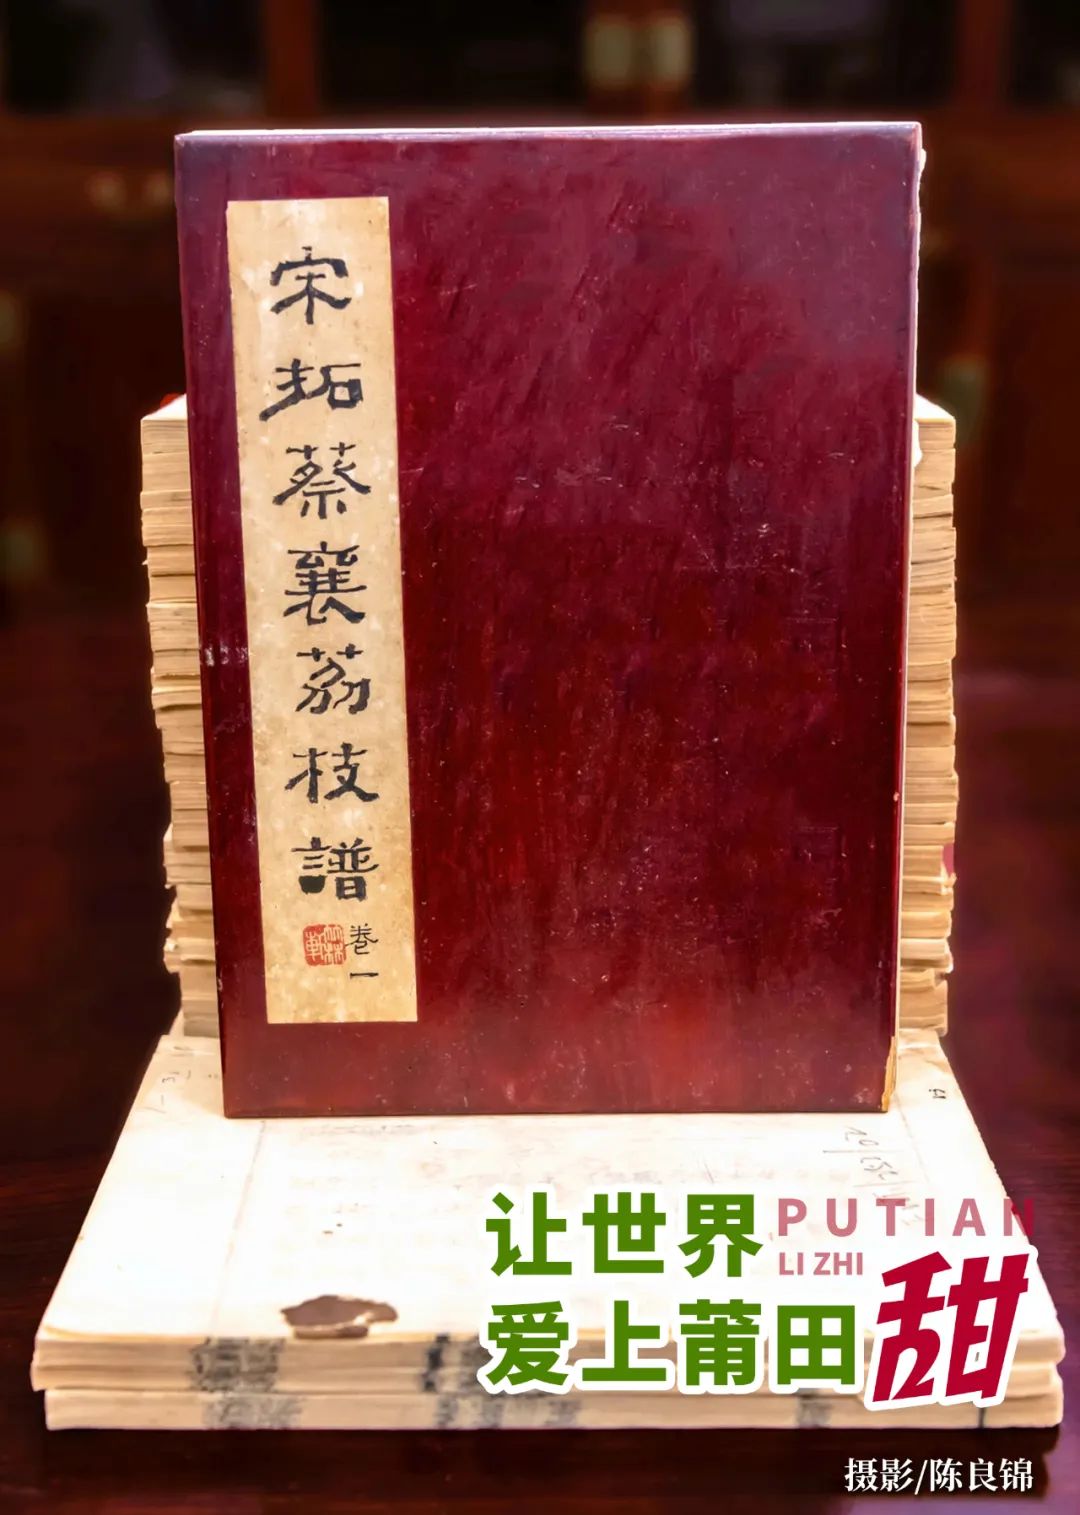 宋拓蔡襄茘枝譜
卷一
让世界
PUTIAN
LI ZHI
爱上莆田甜
摄影/陈良锦